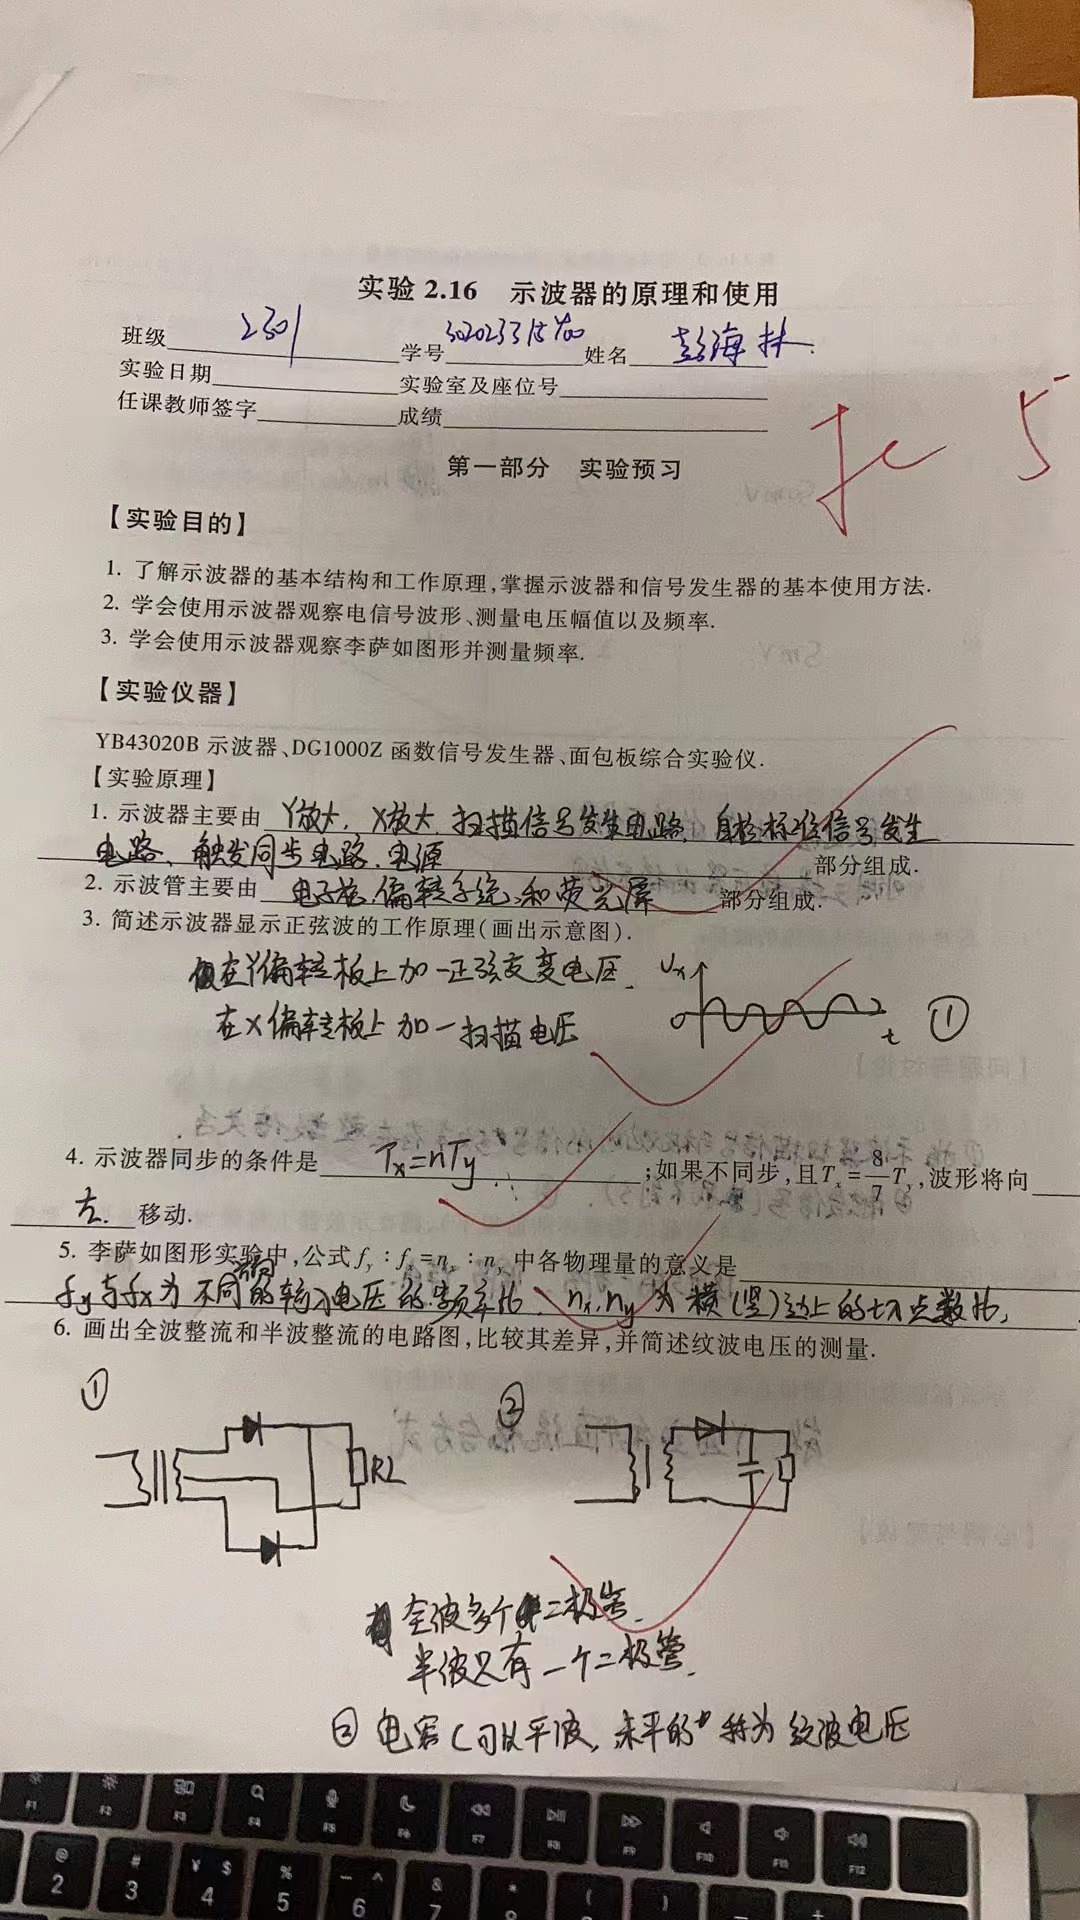 实验 2.16 示波器的原理和使用
班级 2301 学号 姓名 彭海林
实验日期 实验室及座位号
任课教师签字 成绩
5
第一部分 实验预习
【实验目的】
1. 了解示波器的基本结构和工作原理,掌握示波器和信号发生器的基本使用方法.
2. 学会使用示波器观察电信号波形、测量电压幅值以及频率.
3. 学会使用示波器观察李萨如图形并测量频率.
【实验仪器】
YB43020B 示波器、DG1000Z 函数信号发生器、面包板综合实验仪.
【实验原理】
1. 示波器主要由 Y放大, X放大, 扫描信号发生电路, 自检标准信号发生
电路、触发同步电路、电源 部分组成.
2. 示波管主要由 电子枪、偏转系统、和荧光屏 部分组成.
3. 简述示波器显示正弦波的工作原理(画出示意图).
在Y偏转板上加一正弦交变电压.
Ux
在X偏转板上加一扫描电压
O
t
①
4. 示波器同步的条件是 Tx=nTy ;如果不同步,且Tx=8/7Ty,波形将向
左. 移动.
5. 李萨如图形实验中,公式fy:fx=nx:ny中各物理量的意义是
fy与fx为不同偏的输入电压的频率比, nx,ny为横(竖)边上的切点数比,
6. 画出全波整流和半波整流的电路图,比较其差异,并简述纹波电压的测量.
①
②
RL
全波多个二极管.
半波只有一个二极管.
② 电容C可以平波, 未平的 称为纹波电压
F1 F2 F3 F4 F5 F6 F7 F8 F9 F10 F11 F12
@ # ¥ $ % ^ & * ( )
2 3 4 5 6 7 8 9 0